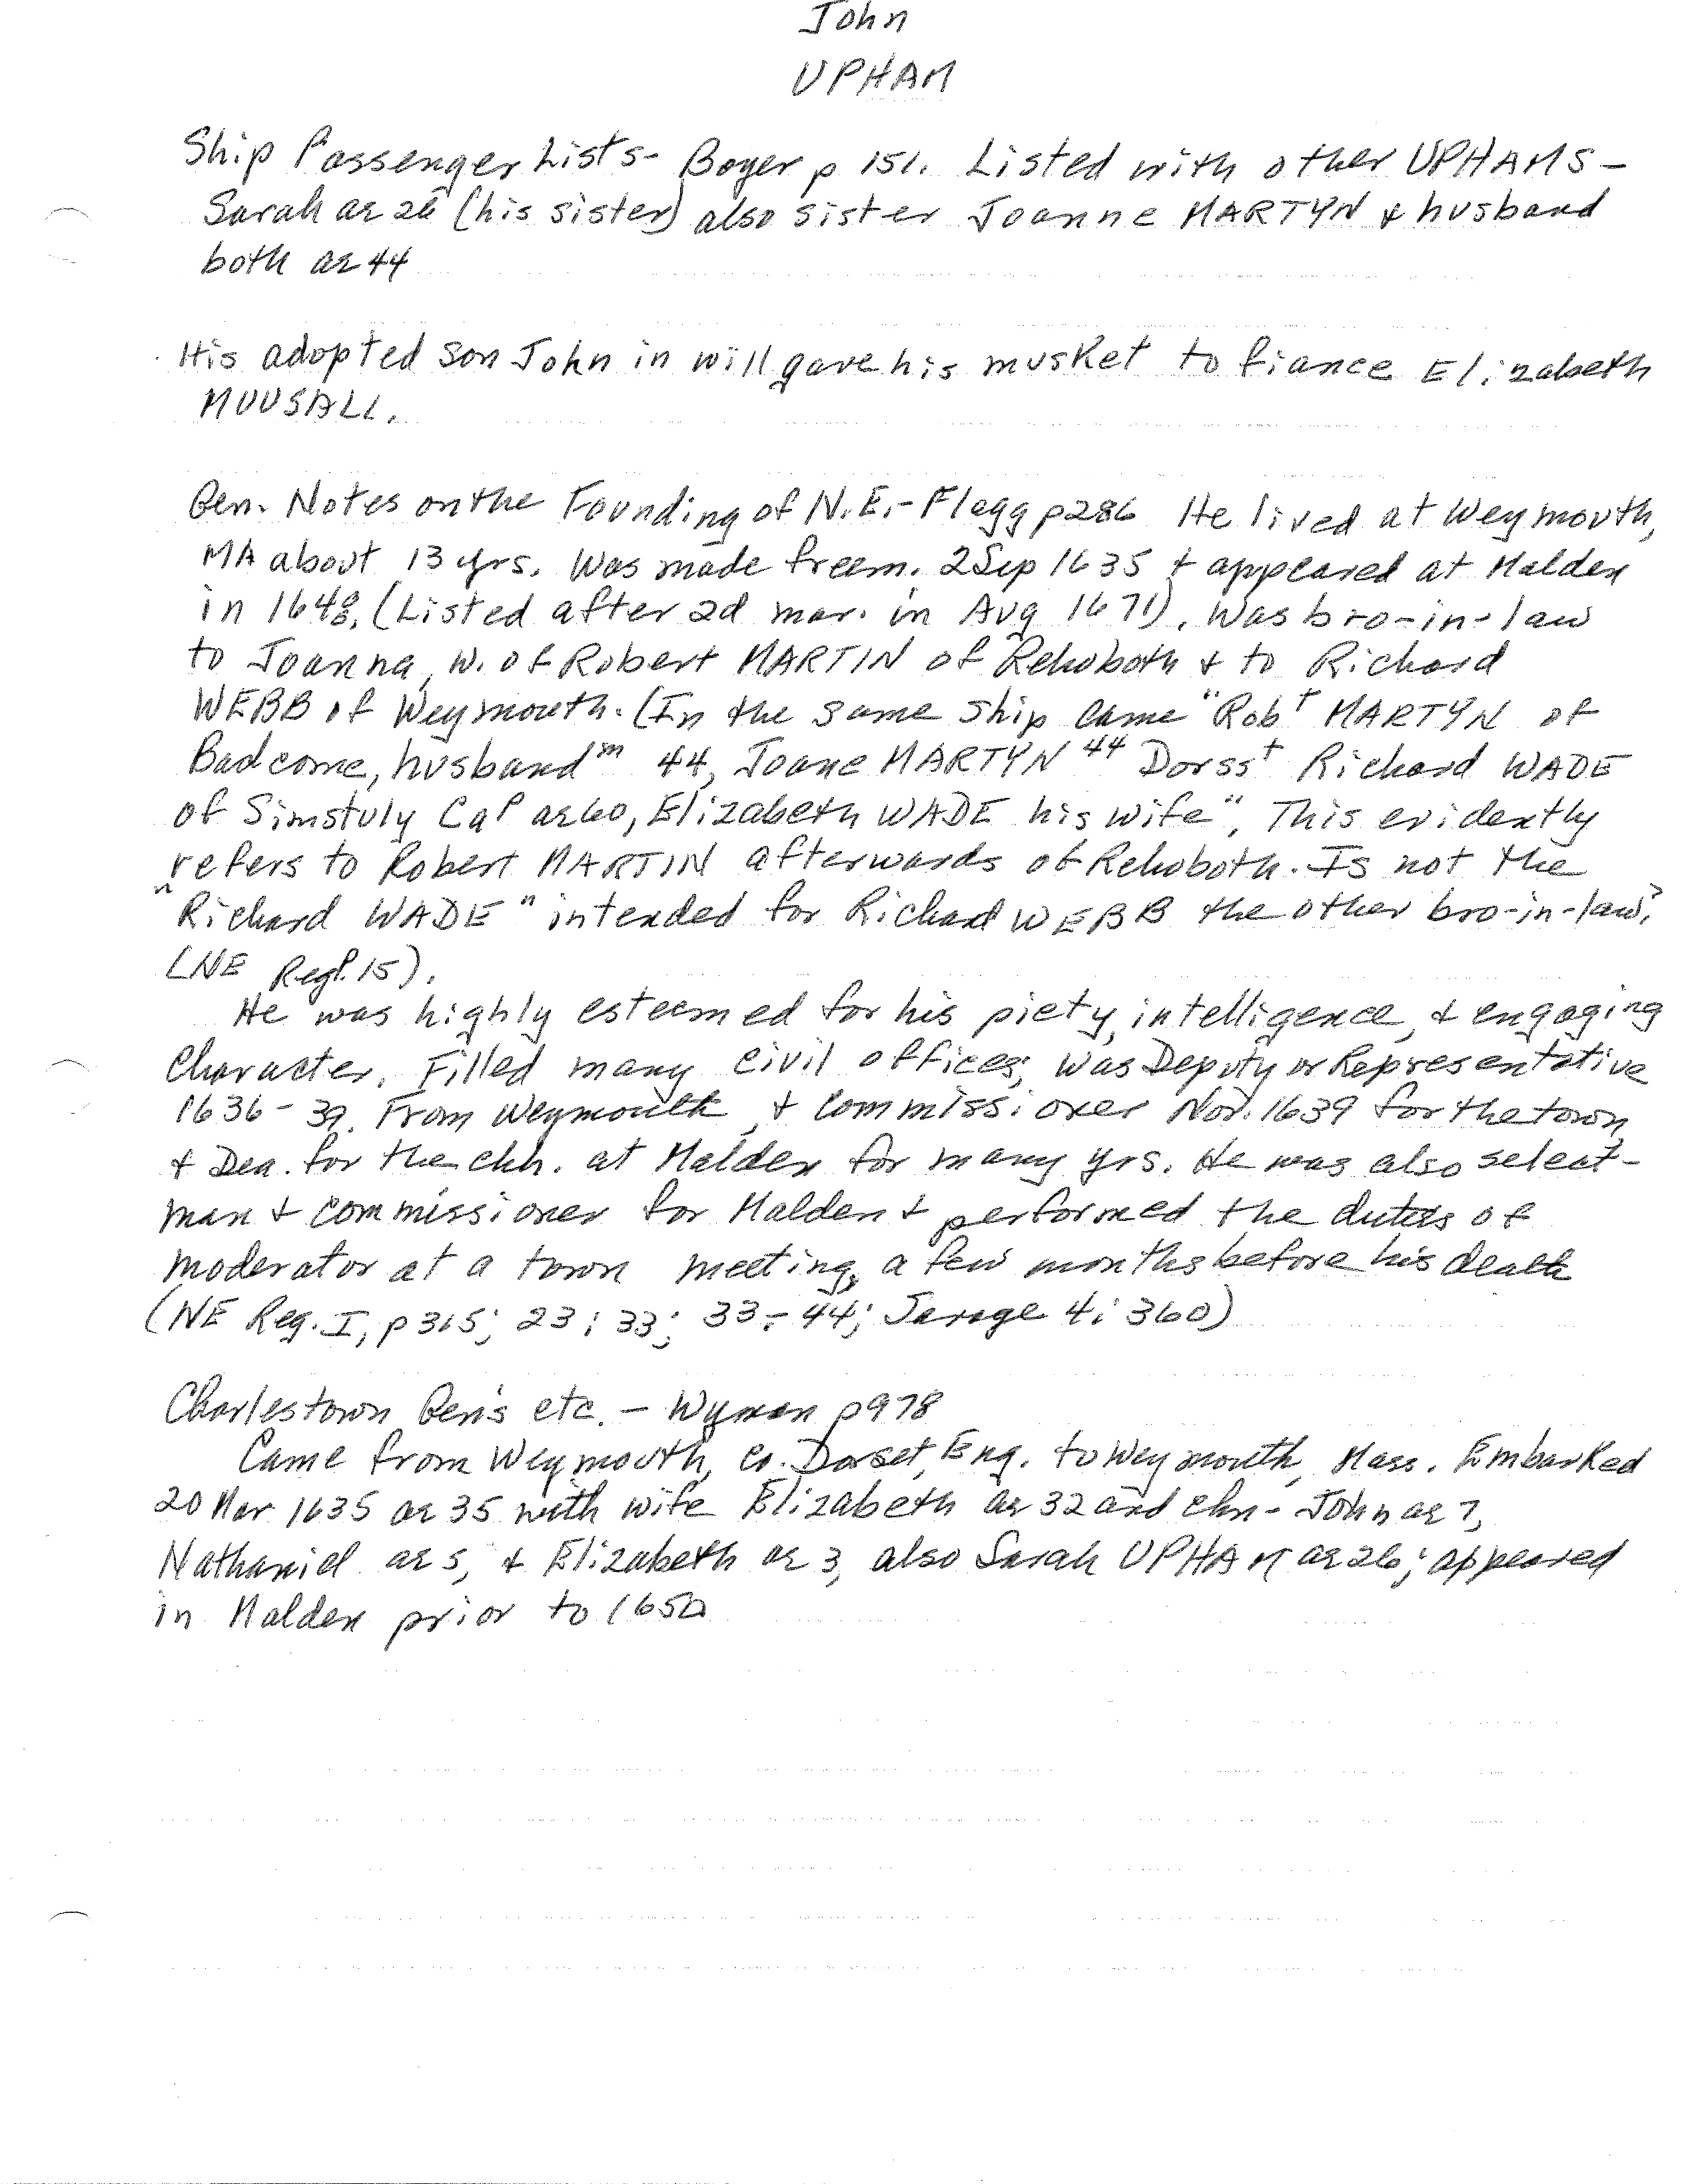 John
UPHAM
Ship Passenger Lists- Boyer p 151. Listed with other UPHAMS -
Sarah ae 26 (his sister) also sister Joanne MARTYN & husband
both ae 44
His adopted son John in will gave his musket to fiance Elizabeth
MUUSALL.
Gen. Notes on the Founding of N.E.- Flagg p286 He lived at Weymouth,
MA about 13 yrs. Was made freem. 2 Sep 1635 & appeared at Malden
in 1648, (Listed after 2d mar. in Aug 1671). Was bro-in-law
to Joanna, w. of Robert MARTIN of Rehoboth & to Richard
WEBB of Weymouth. (In the same ship came "Robt MARTYN of
Badcome, husbandm 44, Joane MARTYN 44 Dorsst Richard WADE
of Simstuly Cap ae 60, Elizabeth WADE his wife". This evidently
refers to Robert MARTIN afterwards of Rehoboth. Is not the
"Richard WADE" intended for Richard WEBB the other bro-in-law?
(NE Reg. 15).
He was highly esteemed for his piety, intelligence, & engaging
Character. Filled many civil offices; was Deputy or Representative
1636-39. From Weymouth, & commissioner Nov. 1639 for the town,
& Dea. for the chh. at Malden for many yrs. He was also select-
man & commissioner for Malden & performed the duties of
moderator at a town meeting, a few months before his death
(NE Reg. I, p 365; 23:33; 33-44; Savage 4:360)
Charlestown Gen's etc. - Wyman p978
Came from Weymouth, Co. Dorset, Eng. to Weymouth, Mass. Embarked
20 Mar 1635 ae 35 with wife Elizabeth ae 32 and chn- John ae 7,
Nathaniel ae 5, & Elizabeth ae 3, also Sarah UPHAM ae 26; appeared
in Malden prior to 1650